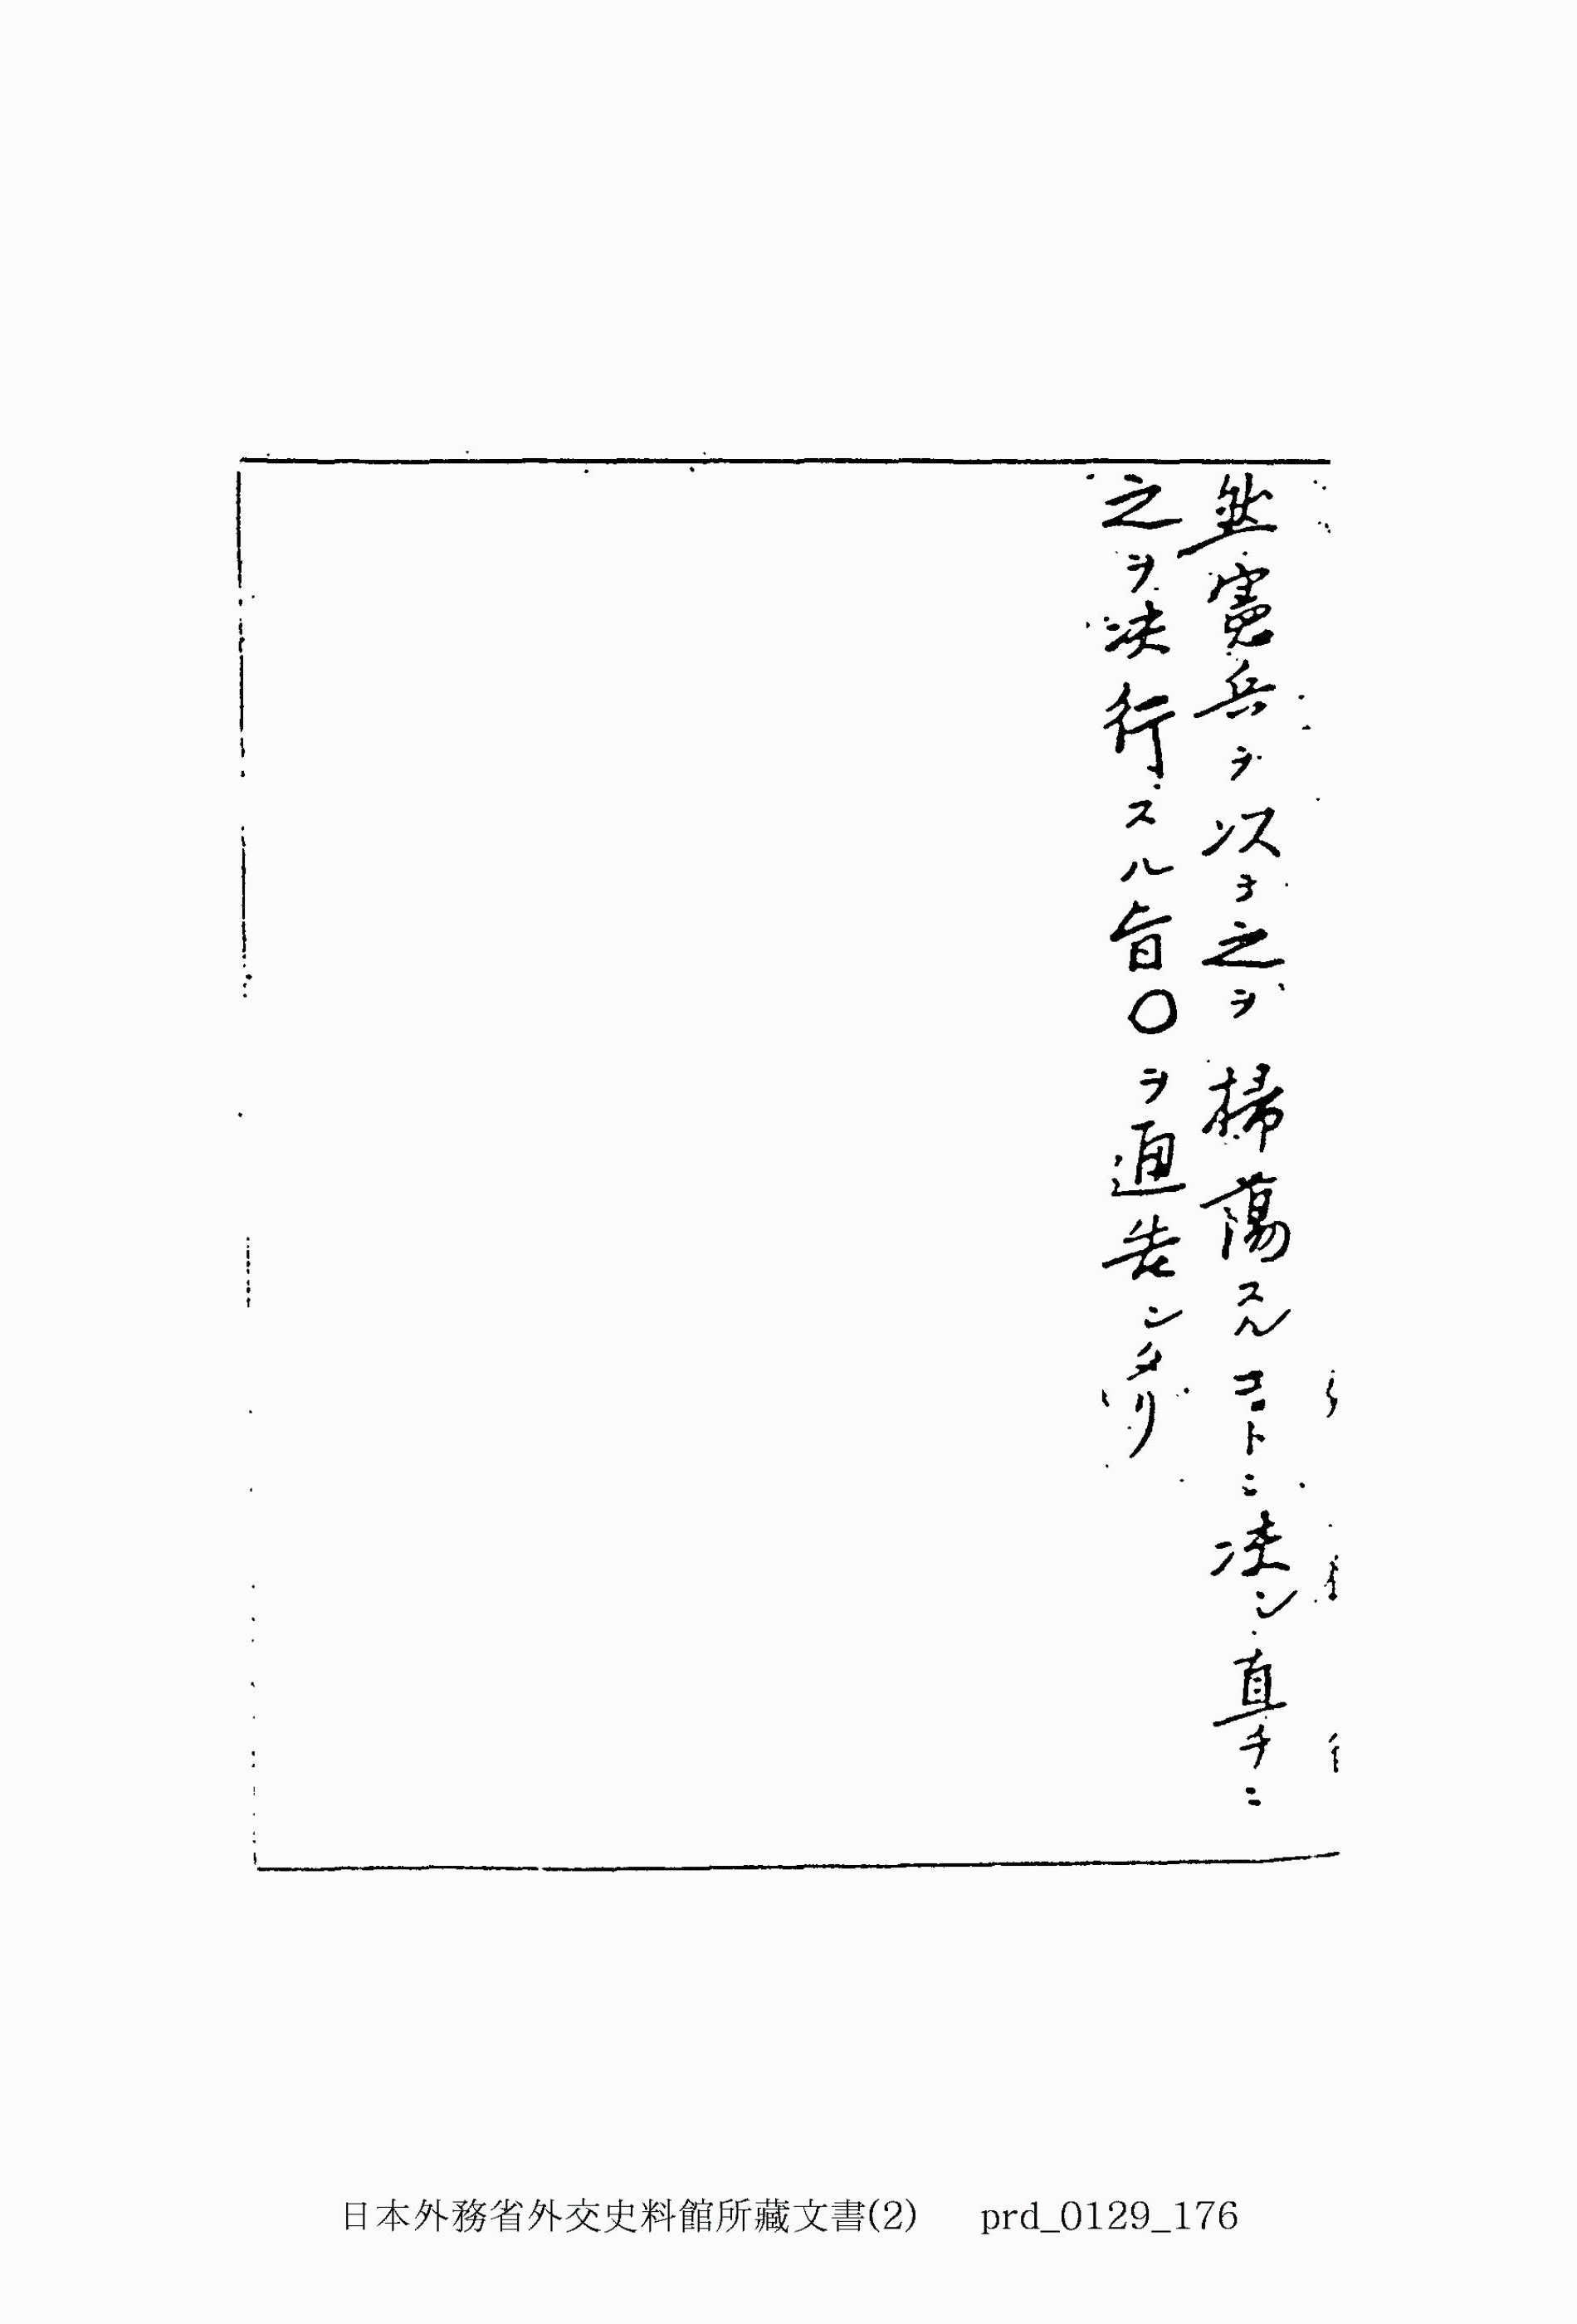 然憲兵ヲ以テ之ヲ掃蕩スルコトニ決シ直チニ
之ヲ決行スル旨〇ヲ通告シタリ
日本外務省外交史料館所藏文書(2) prd_0129_176